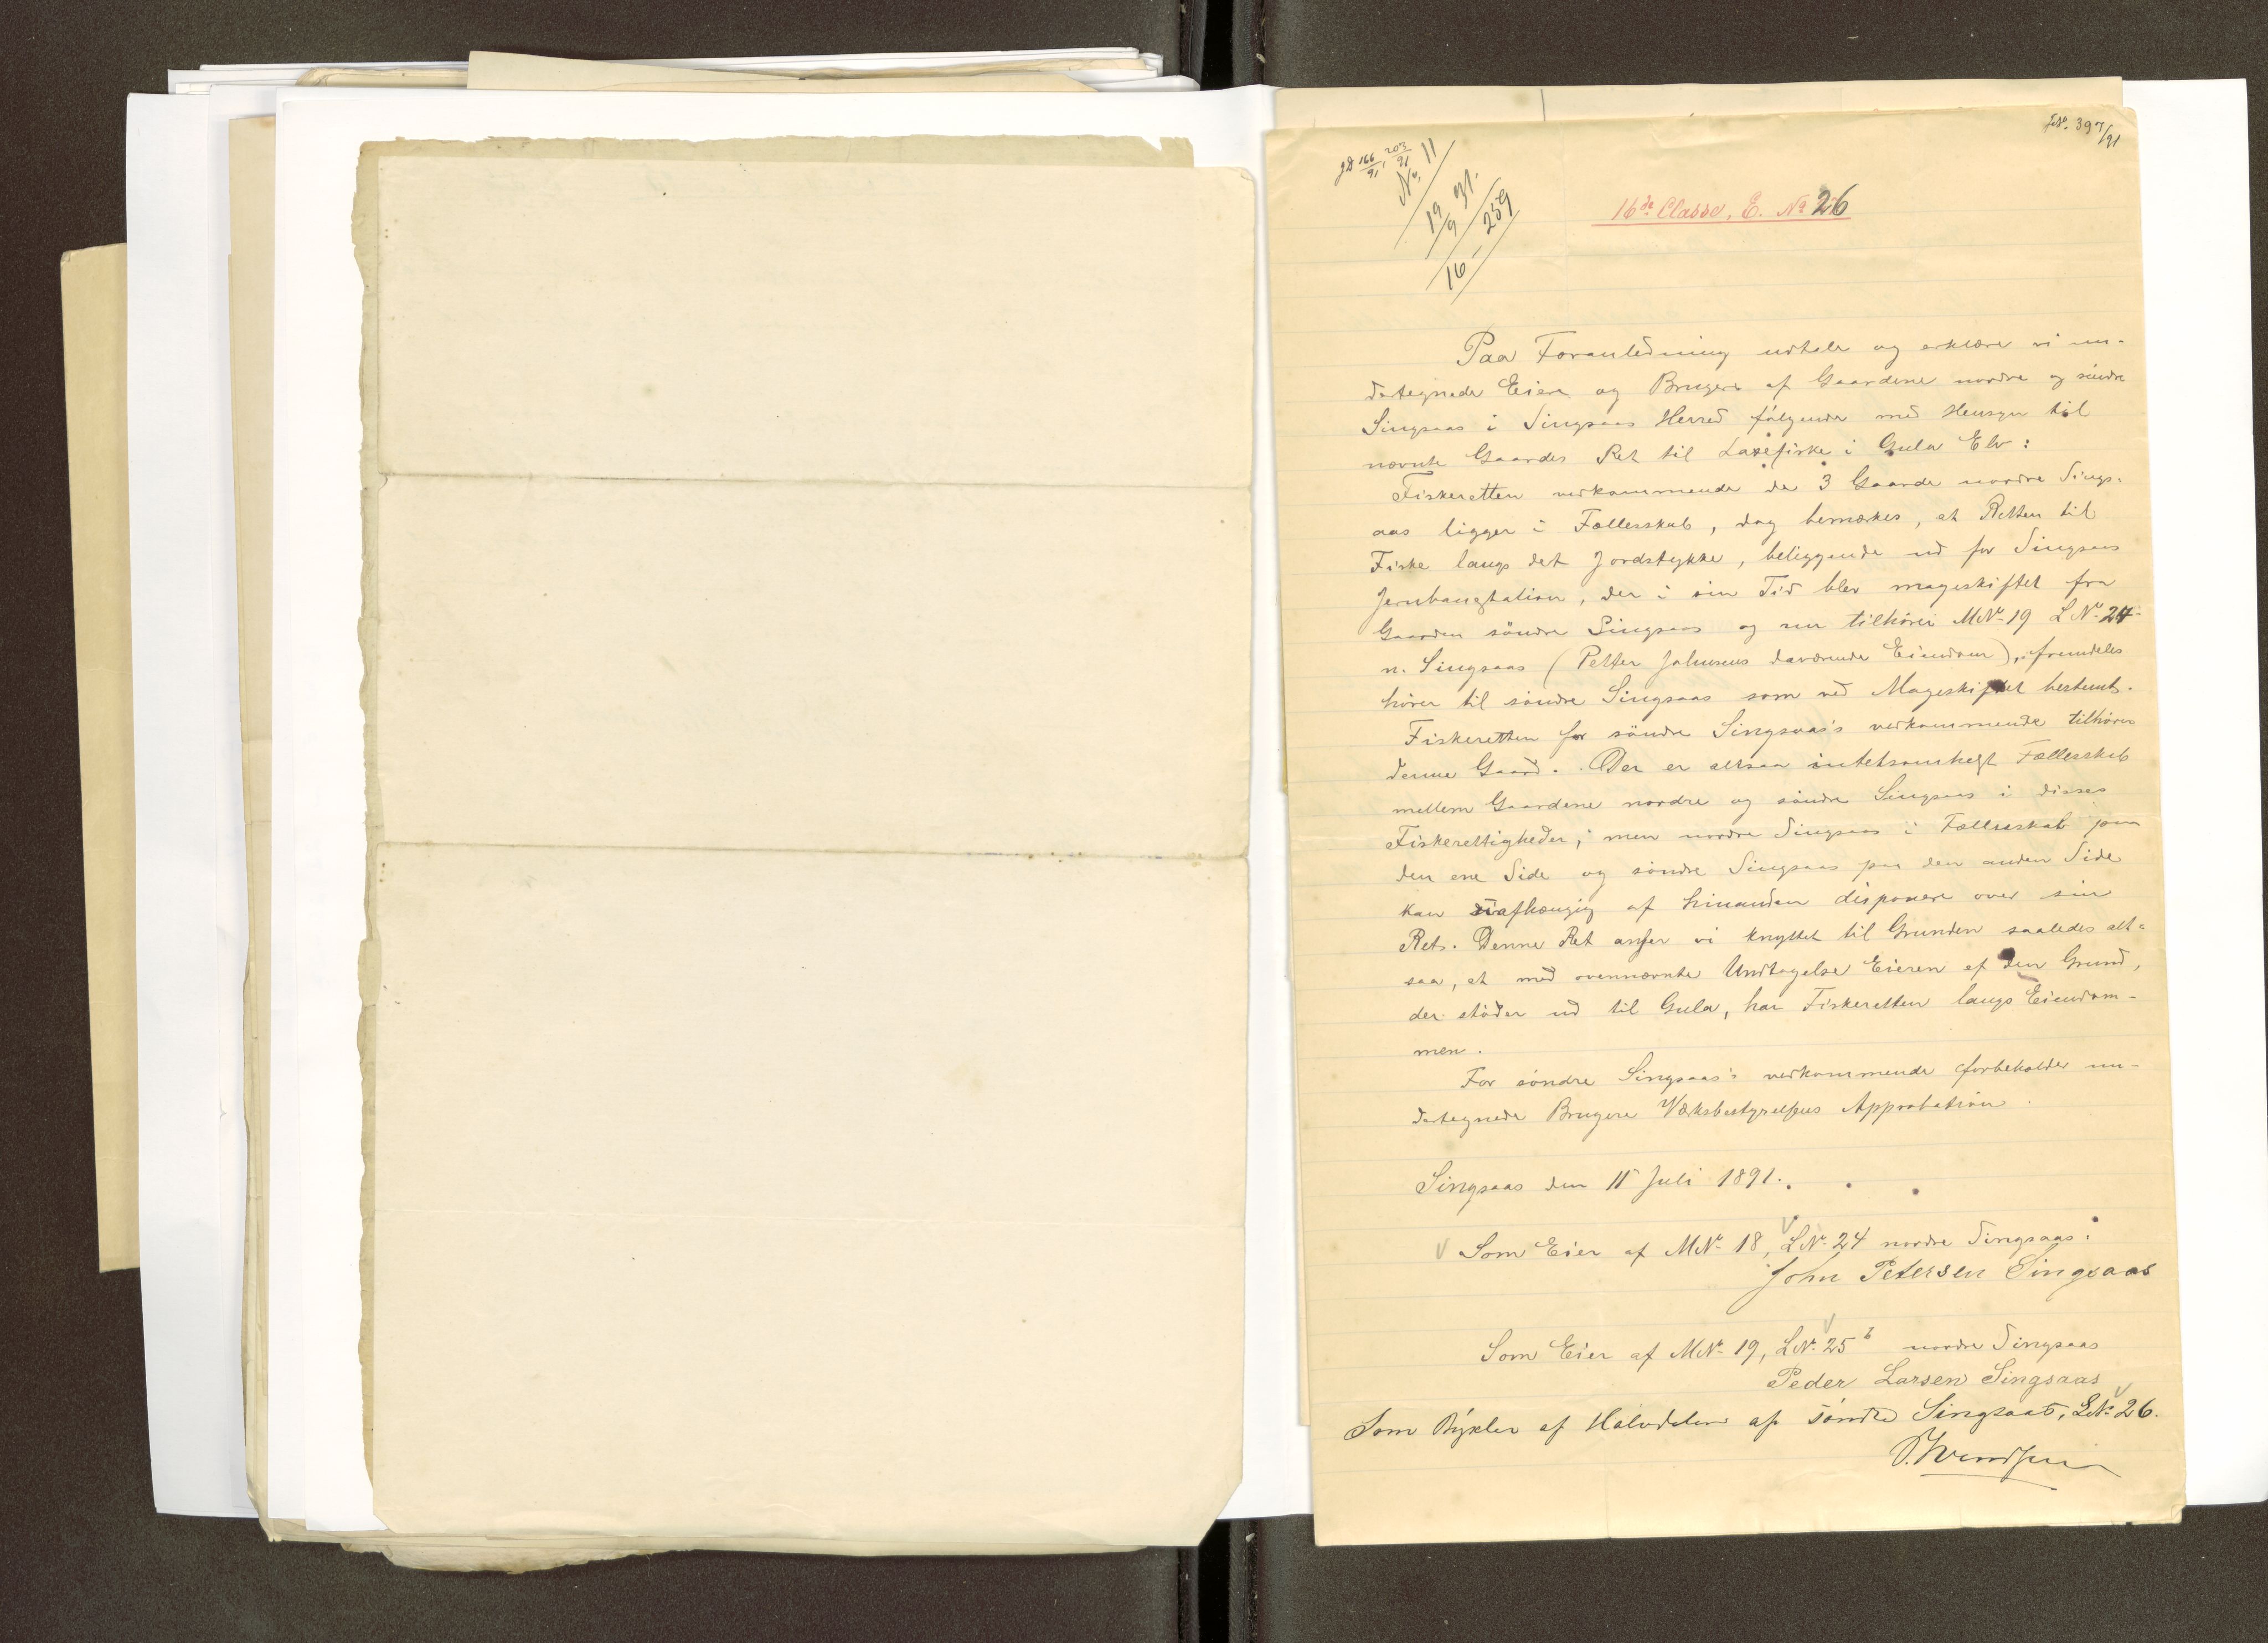 JNo. 397/91
gD 166/91, 203/91
No. 11
19/9 91.
16 - 259
16de Classe, E. No 26
Paa Foranledning udtale og erklære vi un-
dertegnede Eiere og Brugere af Gaardene nordre og søndre
Singsaas i Singsaas Herred følgende med Hensyn til
nævnte Gaardes Ret til Laxefiske i Gula Elv:
Fiskeretten vedkommende de 3 Gaarde nordre Sings-
aas ligger i Fællesskab, dog bemærkes, at Retten til
Fiske langs det Jordstykke, beliggende ud for Singsaas
Jernbanestation, der i sin Tid blev mageskiftet fra
Gaarden søndre Singsaas og nu tilhører MNo 19 LNo 24
n. Singsaas (Petter Johnsens daværende Eiendom), fremdeles
hører til søndre Singsaas som ved Mageskiftet bestemt.
Fiskeretten for søndre Singsaas's vedkommende tilhører
denne Gaard. Der er altsaa intetsomhelst Fællesskab
mellem Gaardene nordre og søndre Singsaas i disses
Fiskerettigheder; men nordre Singsaas i Fællesskab paa
den ene Side og søndre Singsaas paa den anden Side
kan uafhængig af hinanden disponere over sin
Ret. Denne Ret anser vi knyttet til Grunden saaledes alt-
saa, at med ovennævnte Undtagelse Eieren af den Grund,
der støder ud til Gula, har Fiskeretten langs Eiendom-
men.
For søndre Singsaas's vedkommende forbeholder un-
dertegnede Brugere Værksbestyrelsens Approbation.
Singsaas den 11 Juli 1891.
Som Eier af MNo 18, LNo 24 nordre Singsaas:
John Petersen Singsaas
Som Eier af MNo 19, LNo 25 b nordre Singsaas
Peder Larsen Singsaas
Som Bygler af Halvdelen af søndre Singsaas, LNo 26.